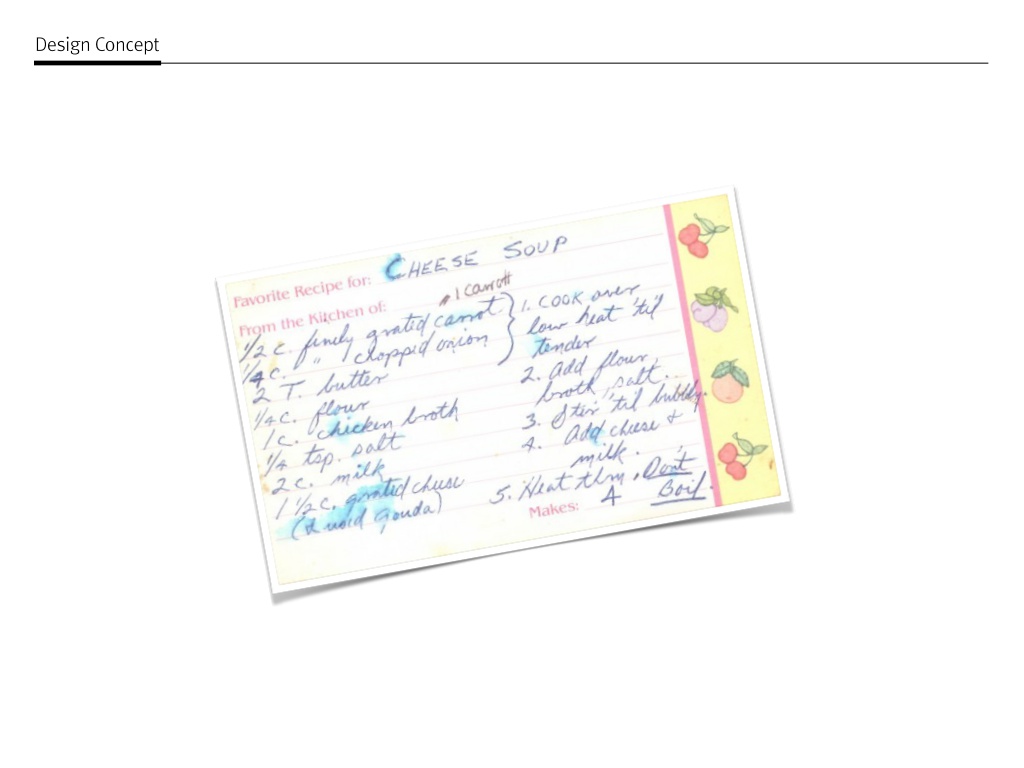 Design Concept
Favorite Recipe for: CHEESE SOUP
From the Kitchen of:
1 carrot
1/2 c. finely grated carrot
1/4 c. " chopped onion
2 T. butter
1/4 c. flour
1 c. chicken broth
1/4 tsp. salt
2 c. milk
1 1/2 c. grated cheese
(Gouda)
1. COOK over
low heat 'til
tender
2. Add flour,
broth, salt.
3. Stir 'til bubbly.
4. Add cheese &
milk.
5. Heat thru. Don't
Boil.
Makes: 4